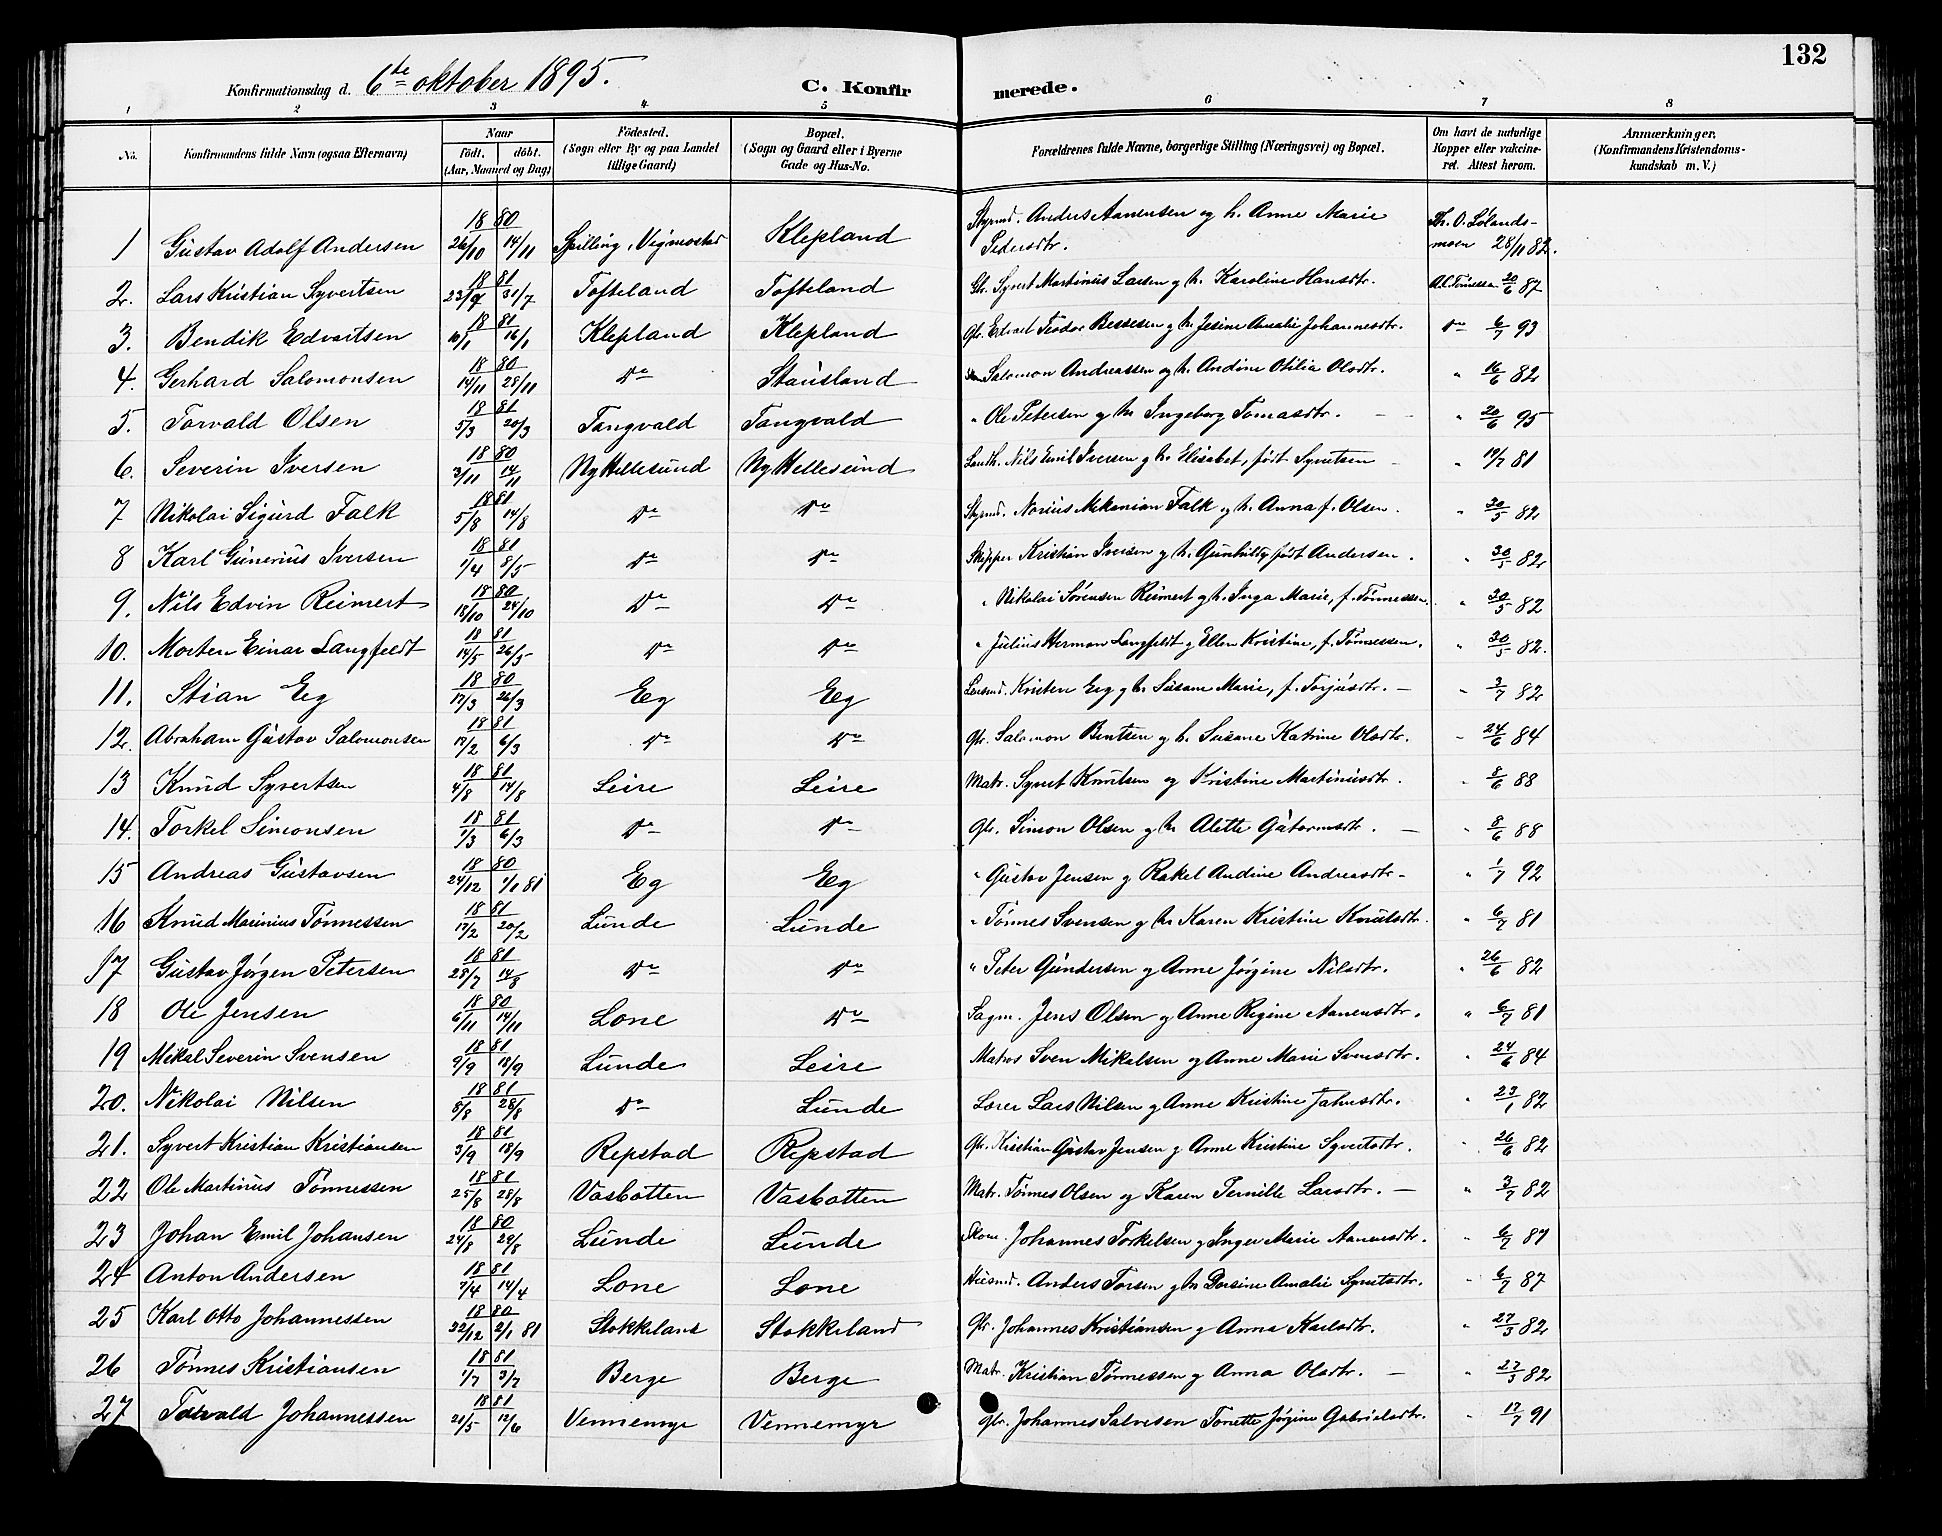 132
Konfirmationsdag d. 6te oktober 1895. C. Konfirmerede.
1 2 3 4 5 6 7 8
No. Konfirmandens fulde Navn (ogsaa Efternavn) Naar födt. döbt. (Aar, Maaned og Dag) Födested. (Sogn eller By og paa Landet tillige Gaard) Bopæl. (Sogn og Gaard eller i Byerne Gade og Hus-No. Forældrenes fulde Navne, borgerlige Stilling (Næringsvei) og Bopæl. Om havt de naturlige Kopper eller vakcineret. Attest herom. Anmærkninger. (Konfirmandens Kristendomskundskab m. V.)
1 Gustav Adolf Andersen 1880 26/10 14/11 Spilling, Vigmostad Klepland Styrmd. Anders Aanensen og h. Anne Marie Pedersdtr. Kr. O. Lølandsmoen 28/11 82.
2. Lars Kristian Syvertsen 1881 23/7 31/7 Tofteland Tofteland Gbr. Syvert Martinius Larsen g h. Karoline Hansdtr. 20/6 87
3. Bendik Edvartsen 1881 10/1 16/1 Klepland Klepland Gbr. Edvart Teodor Bessesen g h. Jesine Amalie Johannesdtr. do 6/7 93
4. Gerhard Salomonsen 1880 14/11 28/11 do Stausland Salomon Andreassen og h. Andine Otilia Olsdtr. " 16/6 82
5. Torvald Olsen 1881 5/3 20/3 Tangvald Tangvald " Ole Petersen g h. Ingeborg Tomasdtr. — " 20/6 95
6. Severin Iversen 1880 3/11 14/11 Ny Hellesund Ny Hellesund Landh. Nils Emil Iversen g h. Elisabet, født Syvertsen — " 19/7 81
7 Nikolai Sigurd Falk 1881 5/8 14/8 do do Styrmd. Norius Mekanian Falk og h. Anna f. Olsen. " 30/5 82
8 Karl Gunerius Iversen 1881 1/4 8/5 do do Skipper Kristian Iversen g h. Gunhild, født Andersen. " 30/5 82
9. Nils Edvin Reimert 1880 18/10 24/10 do do " Nikolai Sørensen Reimert g h. Inga Marie, f. Tønnessen. " 30/5 82
10. Morten Einar Langfeldt 1881 14/5 26/5 do do " Julius Herman Langfeldt g Ellen Kristine, f. Tønnessen. " 30/5 82.
11. Stian Eeg 1880 17/3 26/3 Eeg Eeg Lensmd. Kristen Eeg g h. Susanne Marie, f. Torjusdtr. — " 3/7 82
12. Abraham Gustav Salomonsen 1881 17/2 6/3 do do Gbr. Salomon Bentsen g h. Susane Katrine Olsdtr. " 24/6 84
13 Knud Syvertsen 1881 4/8 14/8 Leire Leire Matr. Syvert Knutsen og Kristine Martinusdtr. " 8/6 88
14. Torkel Simonsen 1881 1/3 6/3 do do Gbr. Simon Olsen g h. Alette Gutormsdtr. — " 8/6 88
15 Andreas Gustavsen 1880 24/12 1/1 81 Eg Eeg " Gustav Jensen g Rakel Andine Andreasdtr — " 1/7 92
16 Knud Marinius Tønnessen 1881 17/2 20/2 Lunde Lunde " Tønnes Svensen g h. Karen Kristine Knutsdtr. " 6/7 81
17 Gustav Jørgen Petersen 1881 28/7 14/8 do do " Peter Gundersen g Anne Jørgine Nilsdtr. " 26/6 82
18 Ole Jensen 1880 6/11 14/11 Lone do Sagm. Jens Olsen g Anne Regine Aanensdtr. " 6/7 81
19 Mikal Severin Svensen 1881 9/9 18/9 Lunde Leire Matros Sven Mikalsen og Anne Marie Svensdtr. " 24/6 84
20. Nikolai Nilsen 1881 8/8 28/8 do Lunde Lærer Lars Nilsen g Anne Kristine Jahnsdtr. " 23/1 82
21. Syvert Kristian Kristiansen 1881 3/9 18/9 Repstad Repstad Gbr. Kristian Gustav Jensen g Anne Kristine Syvertsdtr. " 26/6 82
22 Ole Martinus Tønnessen 1881 25/8 28/8 Vasbotten Vasbotten Matr. Tønnes Olsen og Karen Pernille Larsdtr. — " 3/7 82
23 Johan Emil Johansen 1880 24/8 29/8 Lunde Lunde Skom. Johannes Torkelsen g Inger Marie Aanensdtr. " 6/7 87
24 Anton Andersen 1881 7/4 14/4 Lone Lone Husmd. Anders Torsen g h. Dorsine Amalie Syvertsdtr. " 6/7 87
25 Karl Otto Johannessen 1880 22/12 2/1 81 Stokkeland Stokkeland Gbr. Johannes Kristiansen g Anna Karlsdtr. " 27/3 82
26 Tønnes Kristiansen 1881 1/7 3/7 Berge Berge Matr. Kristian Tønnessen g Anna Olsdtr. — " 27/3 82
27 Torvald Johannessen 1881 21/5 12/6 Vennemyr Vennemyr Gbr. Johannes Salvesen Tonette Jørgine Gabrielsdtr. " 17/7 91